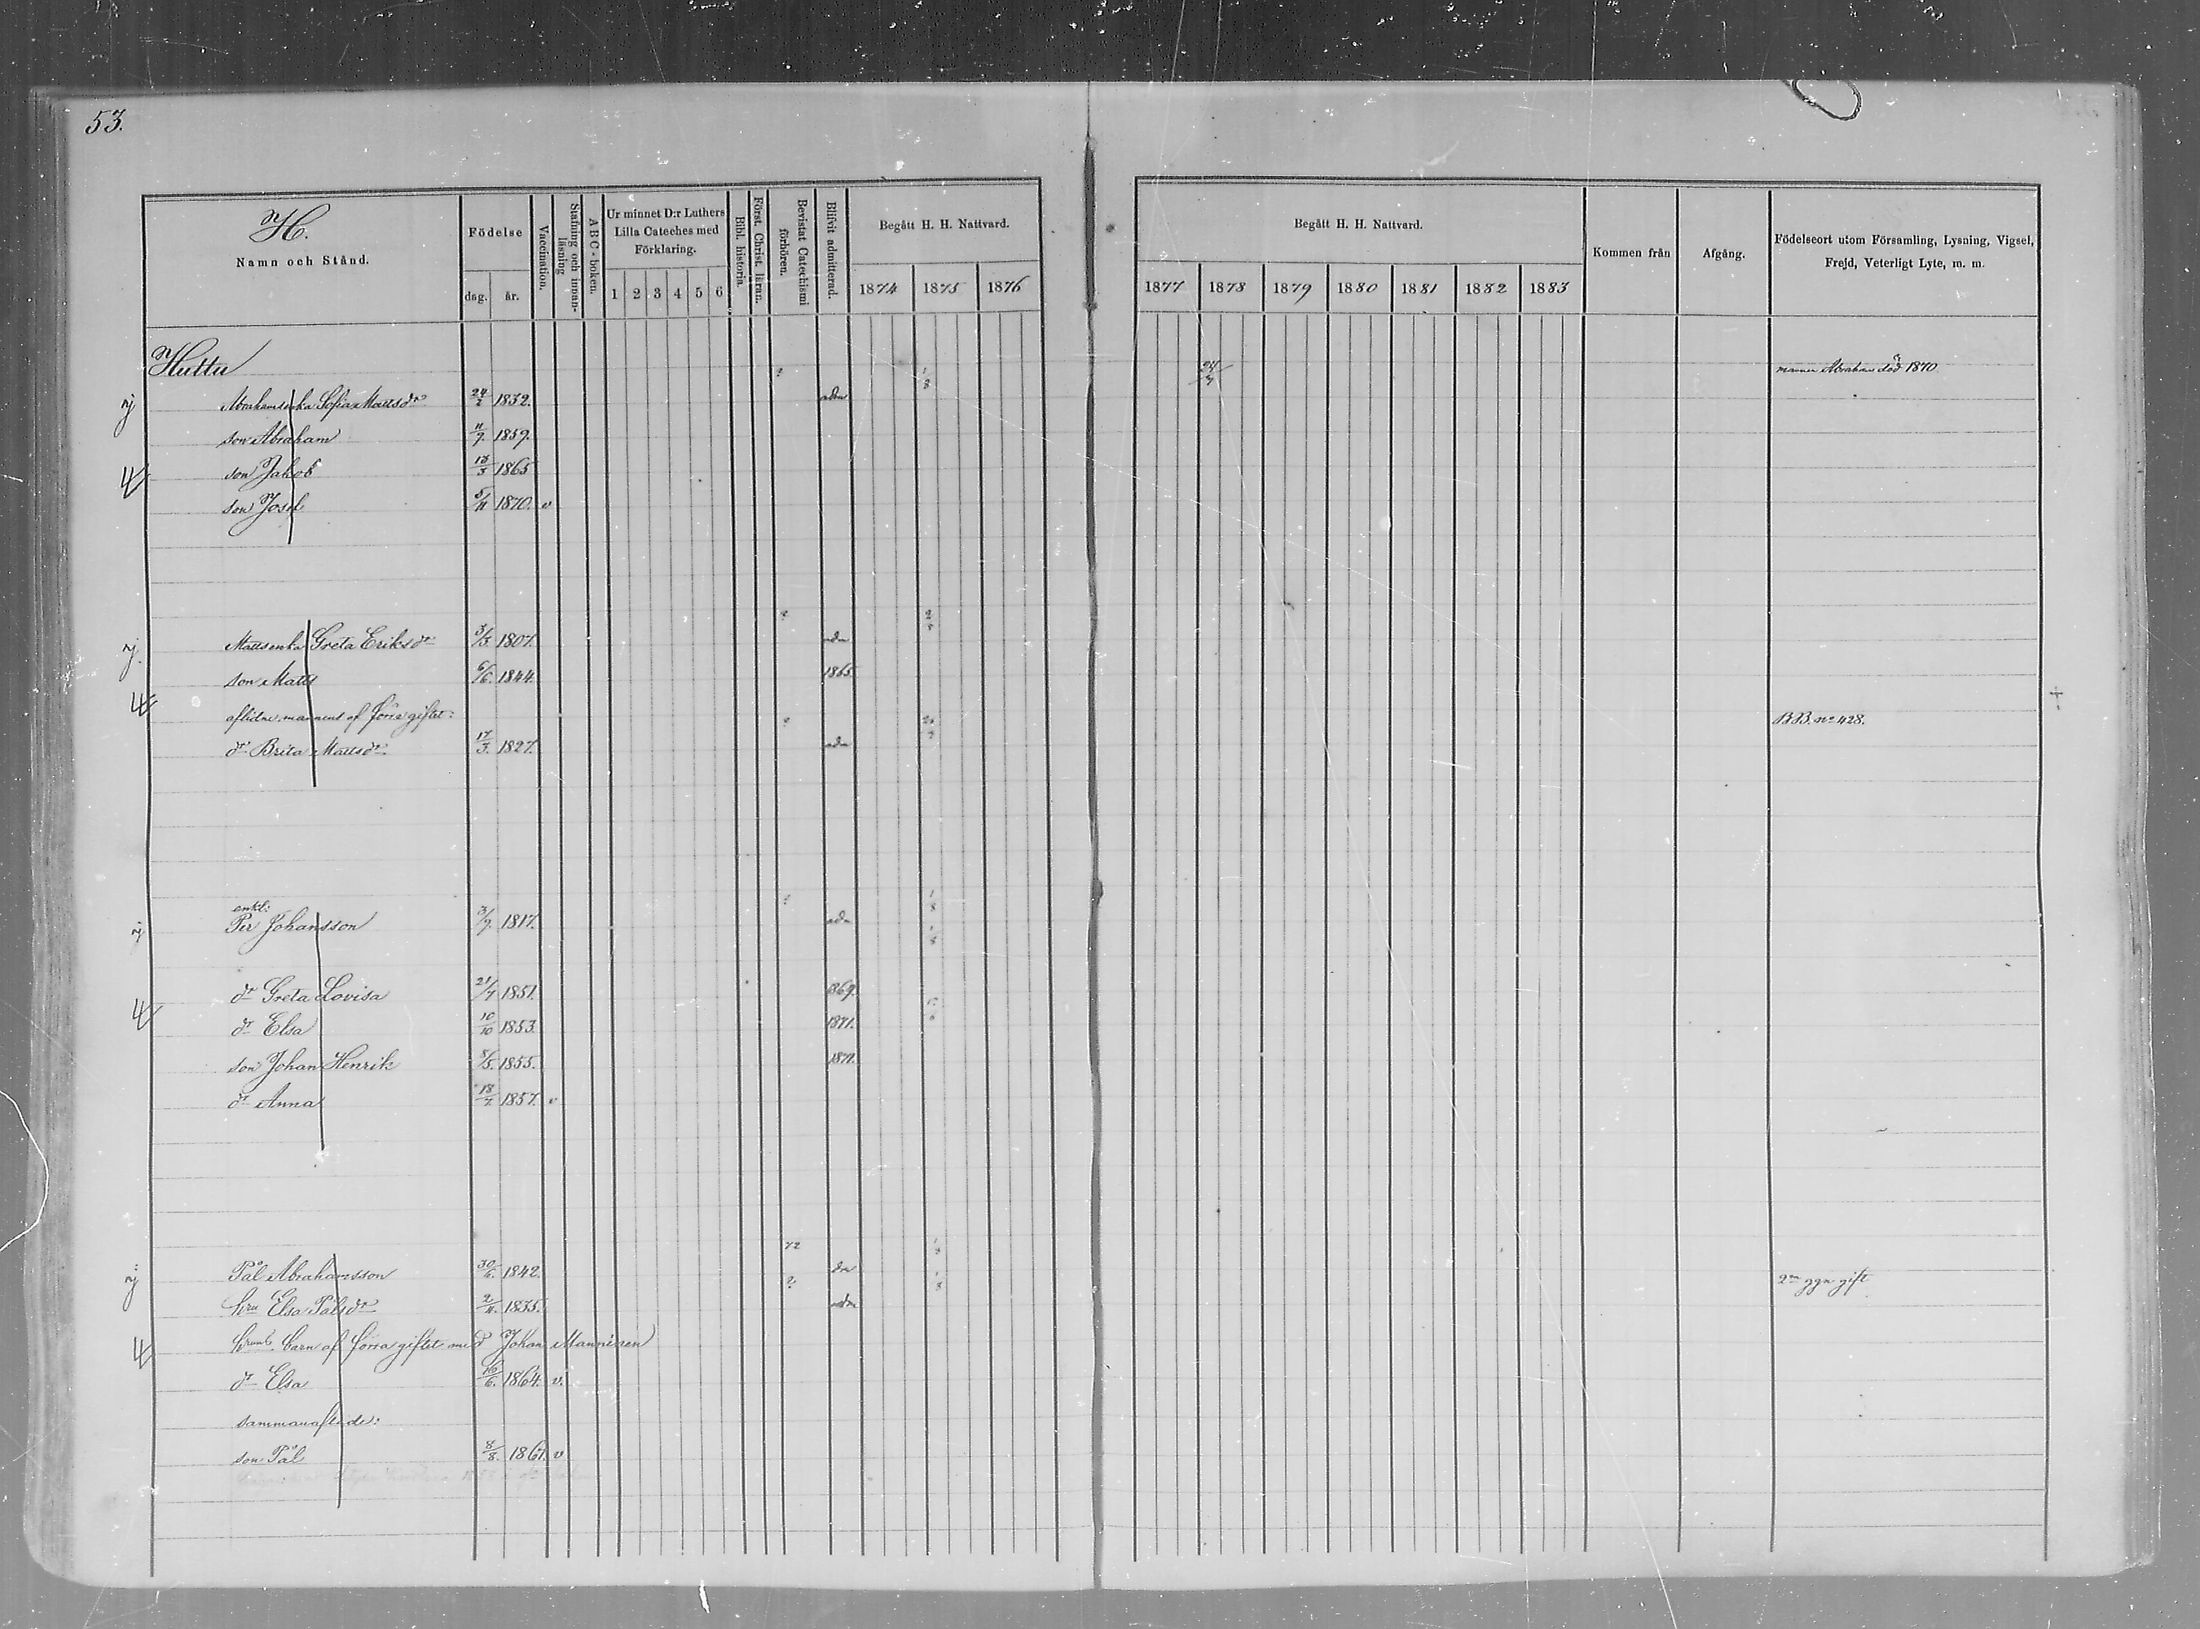 53.
H.
Namn och Stånd.
Födelse
dag.
år.
Vaccination.
Stafning och innan-
läsning
ABC-boken.
Ur minnet D:r Luthers
Lilla Cateches med
Förklaring.
1 2 3 4 5 6
Bibl. historia.
Först. Christ. läran.
Bevistat Catechismi
förhören.
Blifvit admitterad.
Begått H. H. Nattvard.
1874 1875 1876
Begått H. H. Nattvard.
1877 1878 1879 1880 1881 1882 1883
Kommen från
Afgång.
Födelseort utom Församling, Lysning, Vigsel,
Frejd, Veterligt Lyte, m. m.
Huttu
24/7
mannen Abraham död 1870
Abrahamsenka Sofia Mattsdr 1832. adm
son Abraham 1859.
son Jakob 1865
son Josef 5/11 1870. v
Mattsenka Greta Eriksdr 3/3. 1807. adm
son Matts 6/6. 1844. 1865
aflidne mannens af förra giftet: BB. no 428.
dr Brita Mattsdr 17/3. 1827. adm
enkl:
Per Johansson 1817. adm
dr Greta Lovisa 21/7 1851. 1869.
dr Elsa 10/10 1853. 1871.
son Johan Henrik 8/5. 1855.
dr Anna 18/7. 1857. v
72
Pål Abrahamsson 30/6. 1842.
2 ggn gift
hru Elsa Pålsdr 2/11. 1835. adm
hruns barn af förra giftet med Johan Manninen
dr Elsa 16/6. 1864. v.
sammanaflade:
son Pål 8/8. 1867. v